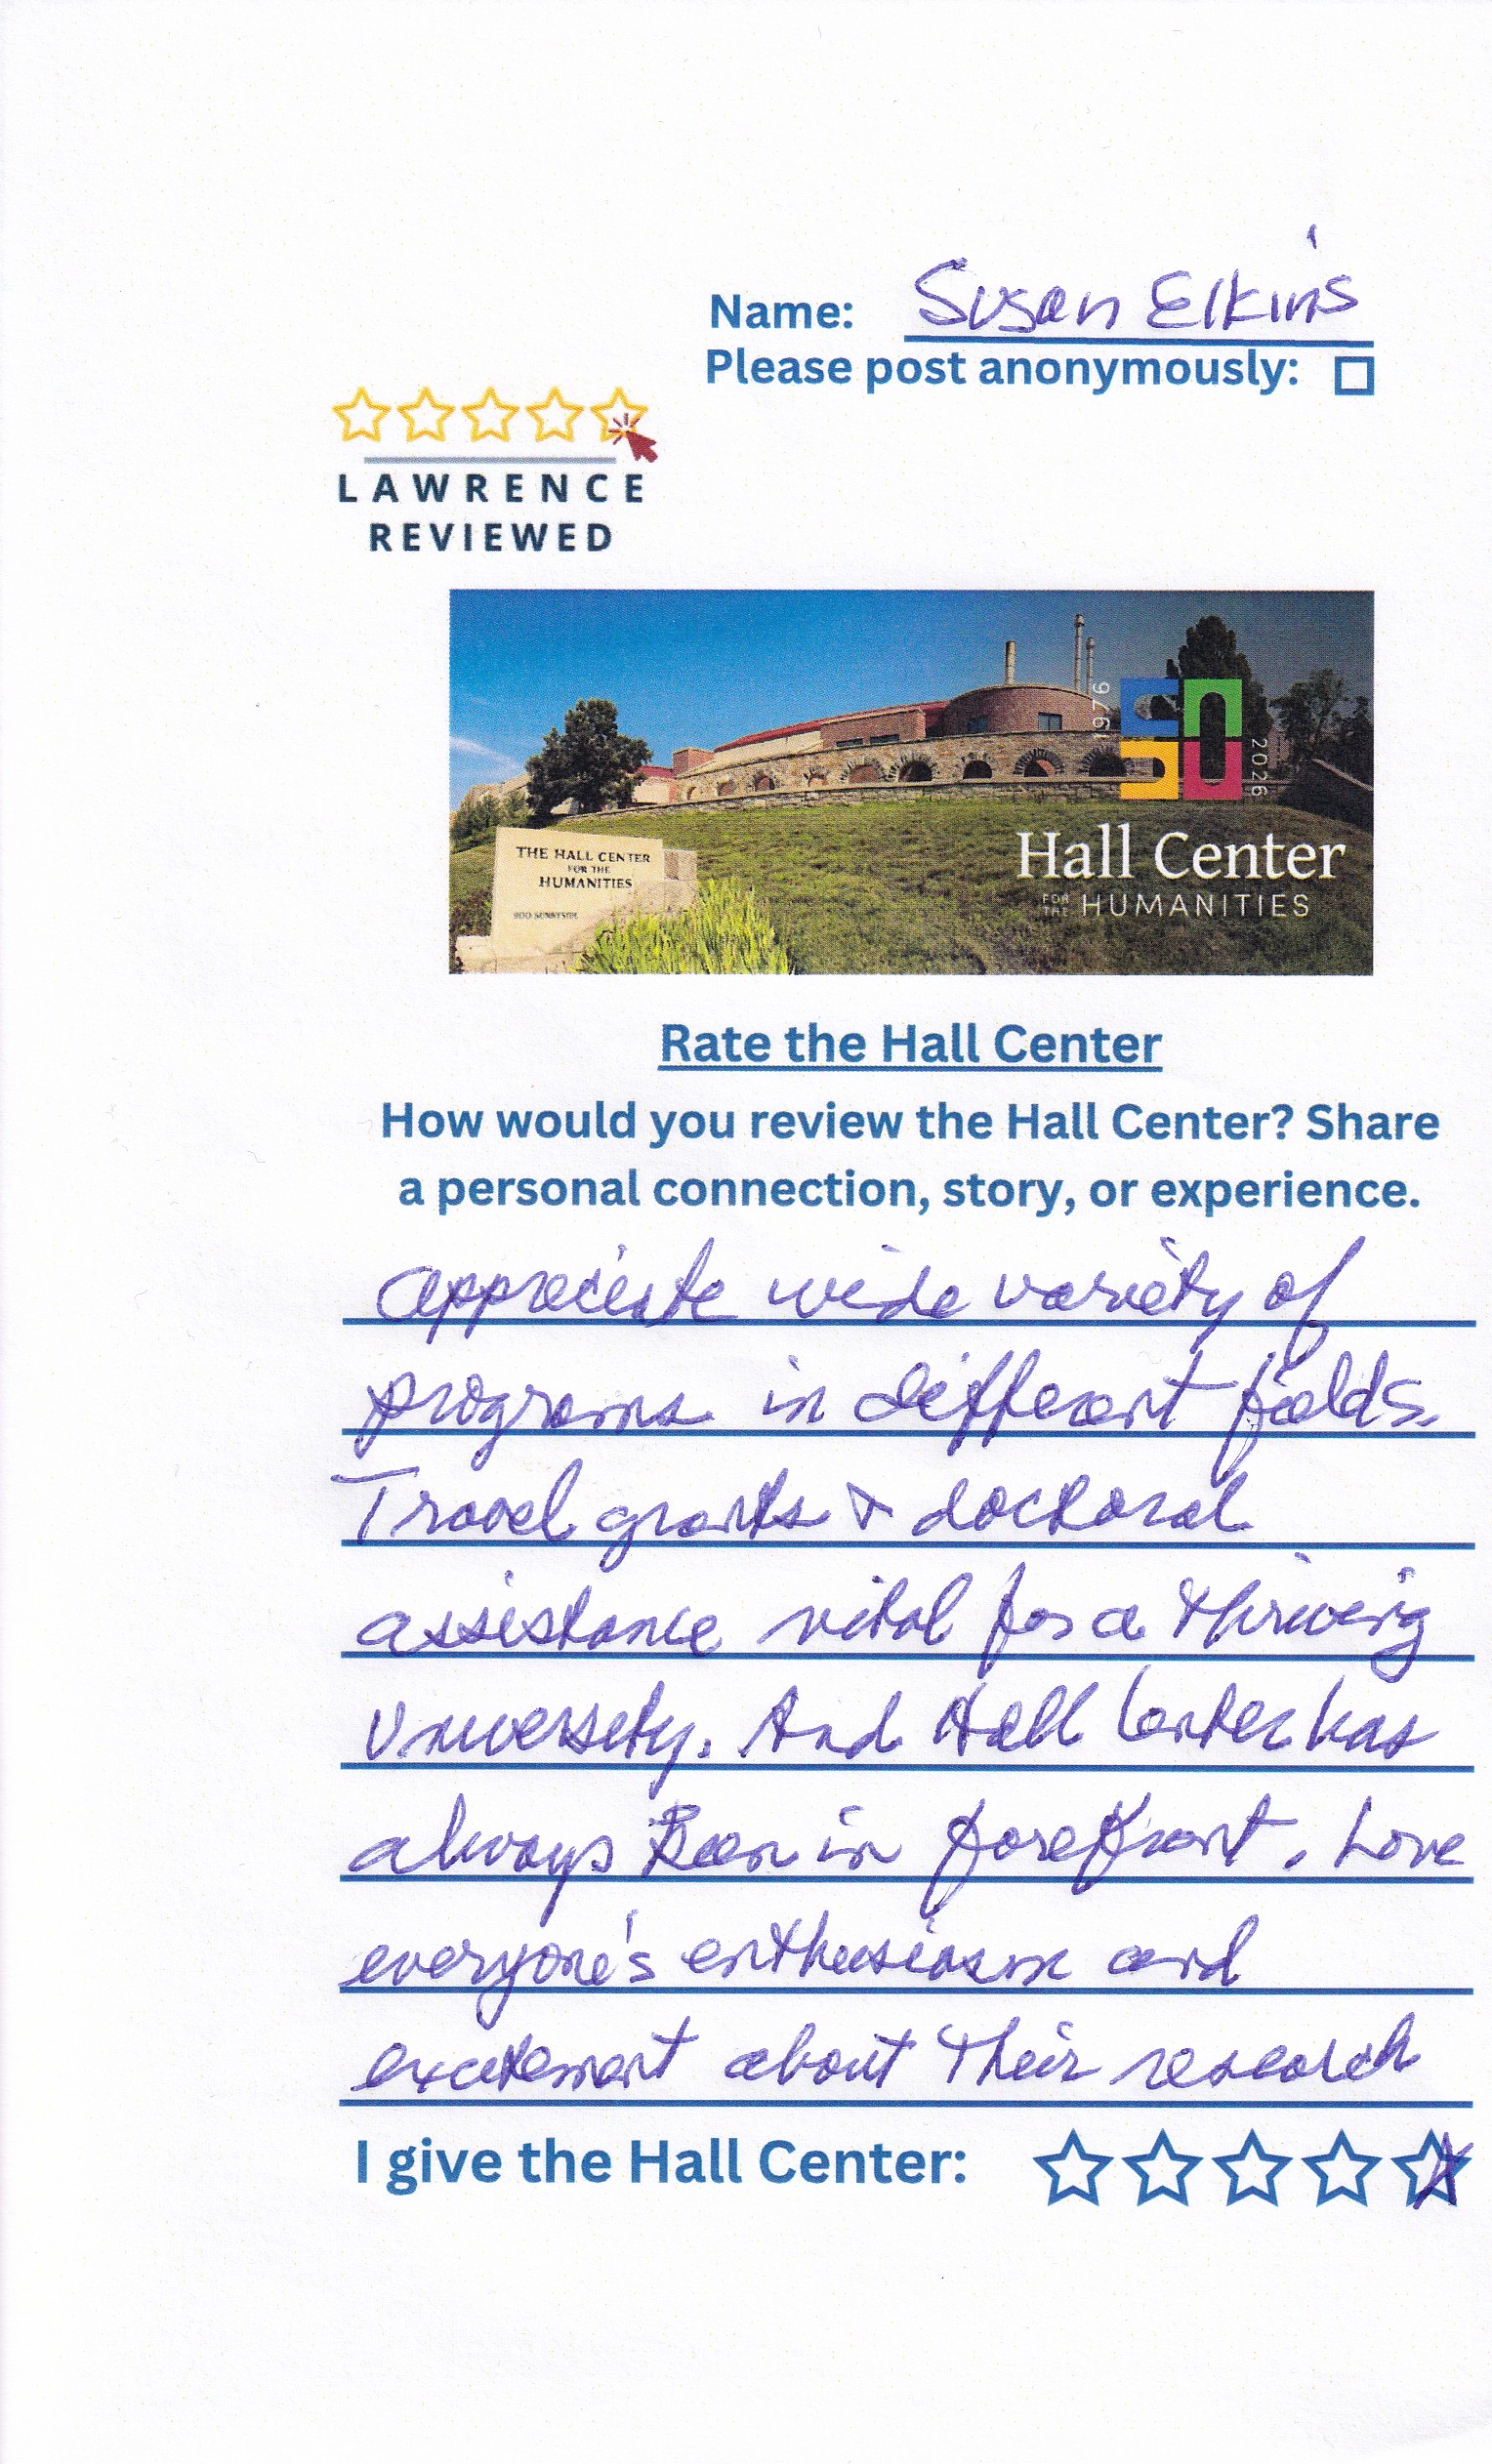 Name: Susan Elkins
Please post anonymously:
LAWRENCE
REVIEWED
1976
2026
THE HALL CENTER
FOR THE
HUMANITIES
900 SUNNYSIDE
Hall Center
FOR THE HUMANITIES
Rate the Hall Center
How would you review the Hall Center? Share
a personal connection, story, or experience.
Appreciate wide variety of
programs in different fields.
Travel grants & doctoral
assistance vital for a thriving
University. And Hall Center has
always been in forefront. Love
everyone's enthusiasm and
excitement about their research
I give the Hall Center: